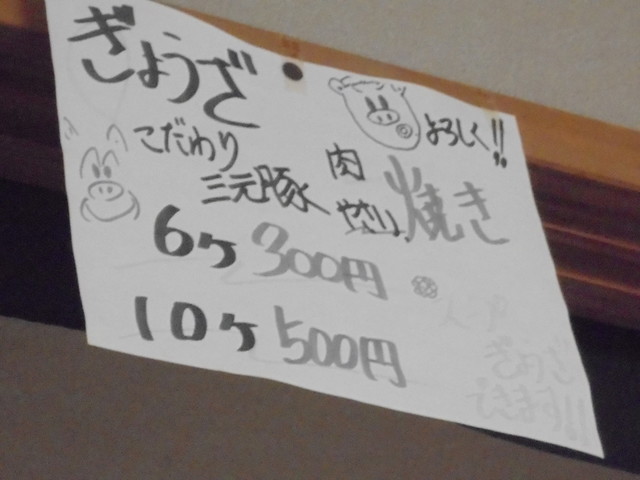 ぎょうざ
よろしく!!
こだわり
三元豚
肉
焼き
6ヶ 300円
10ヶ 500円
ぎょうざ
できます!!